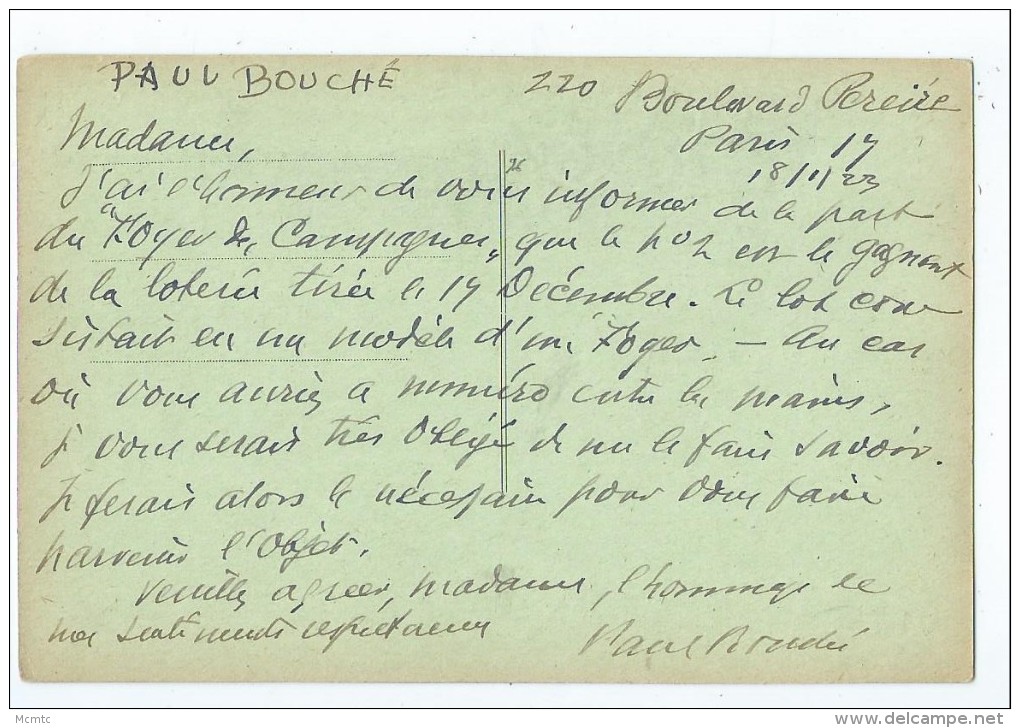 PAUL BOUCHÉ
220 Boulevard Pereire
Paris 17
18/1/23
Madame,
J'ai l'honneur de vous informer de la part
du "Foyer des Campagnes" que le n° 2 est le gagnant
de la loterie tirée le 17 Décembre. Le lot con
sistait en un modèle d'un Foyer - Au cas
où vous auriez ce numéro entre les mains,
je vous serais très obligé de me le faire savoir.
Je ferais alors le nécessaire pour vous faire
parvenir l'Objet.
Veuillez agréer, madame, l'hommage de
mes sentiments respectueux
Paul Bouché
Mcmtc
delcampe.net